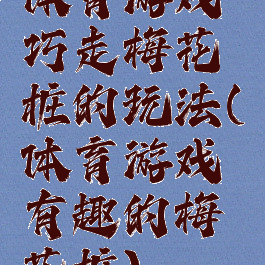 体育游戏
巧走梅花
桩的玩法(
体育游戏
有趣的梅
花桩)